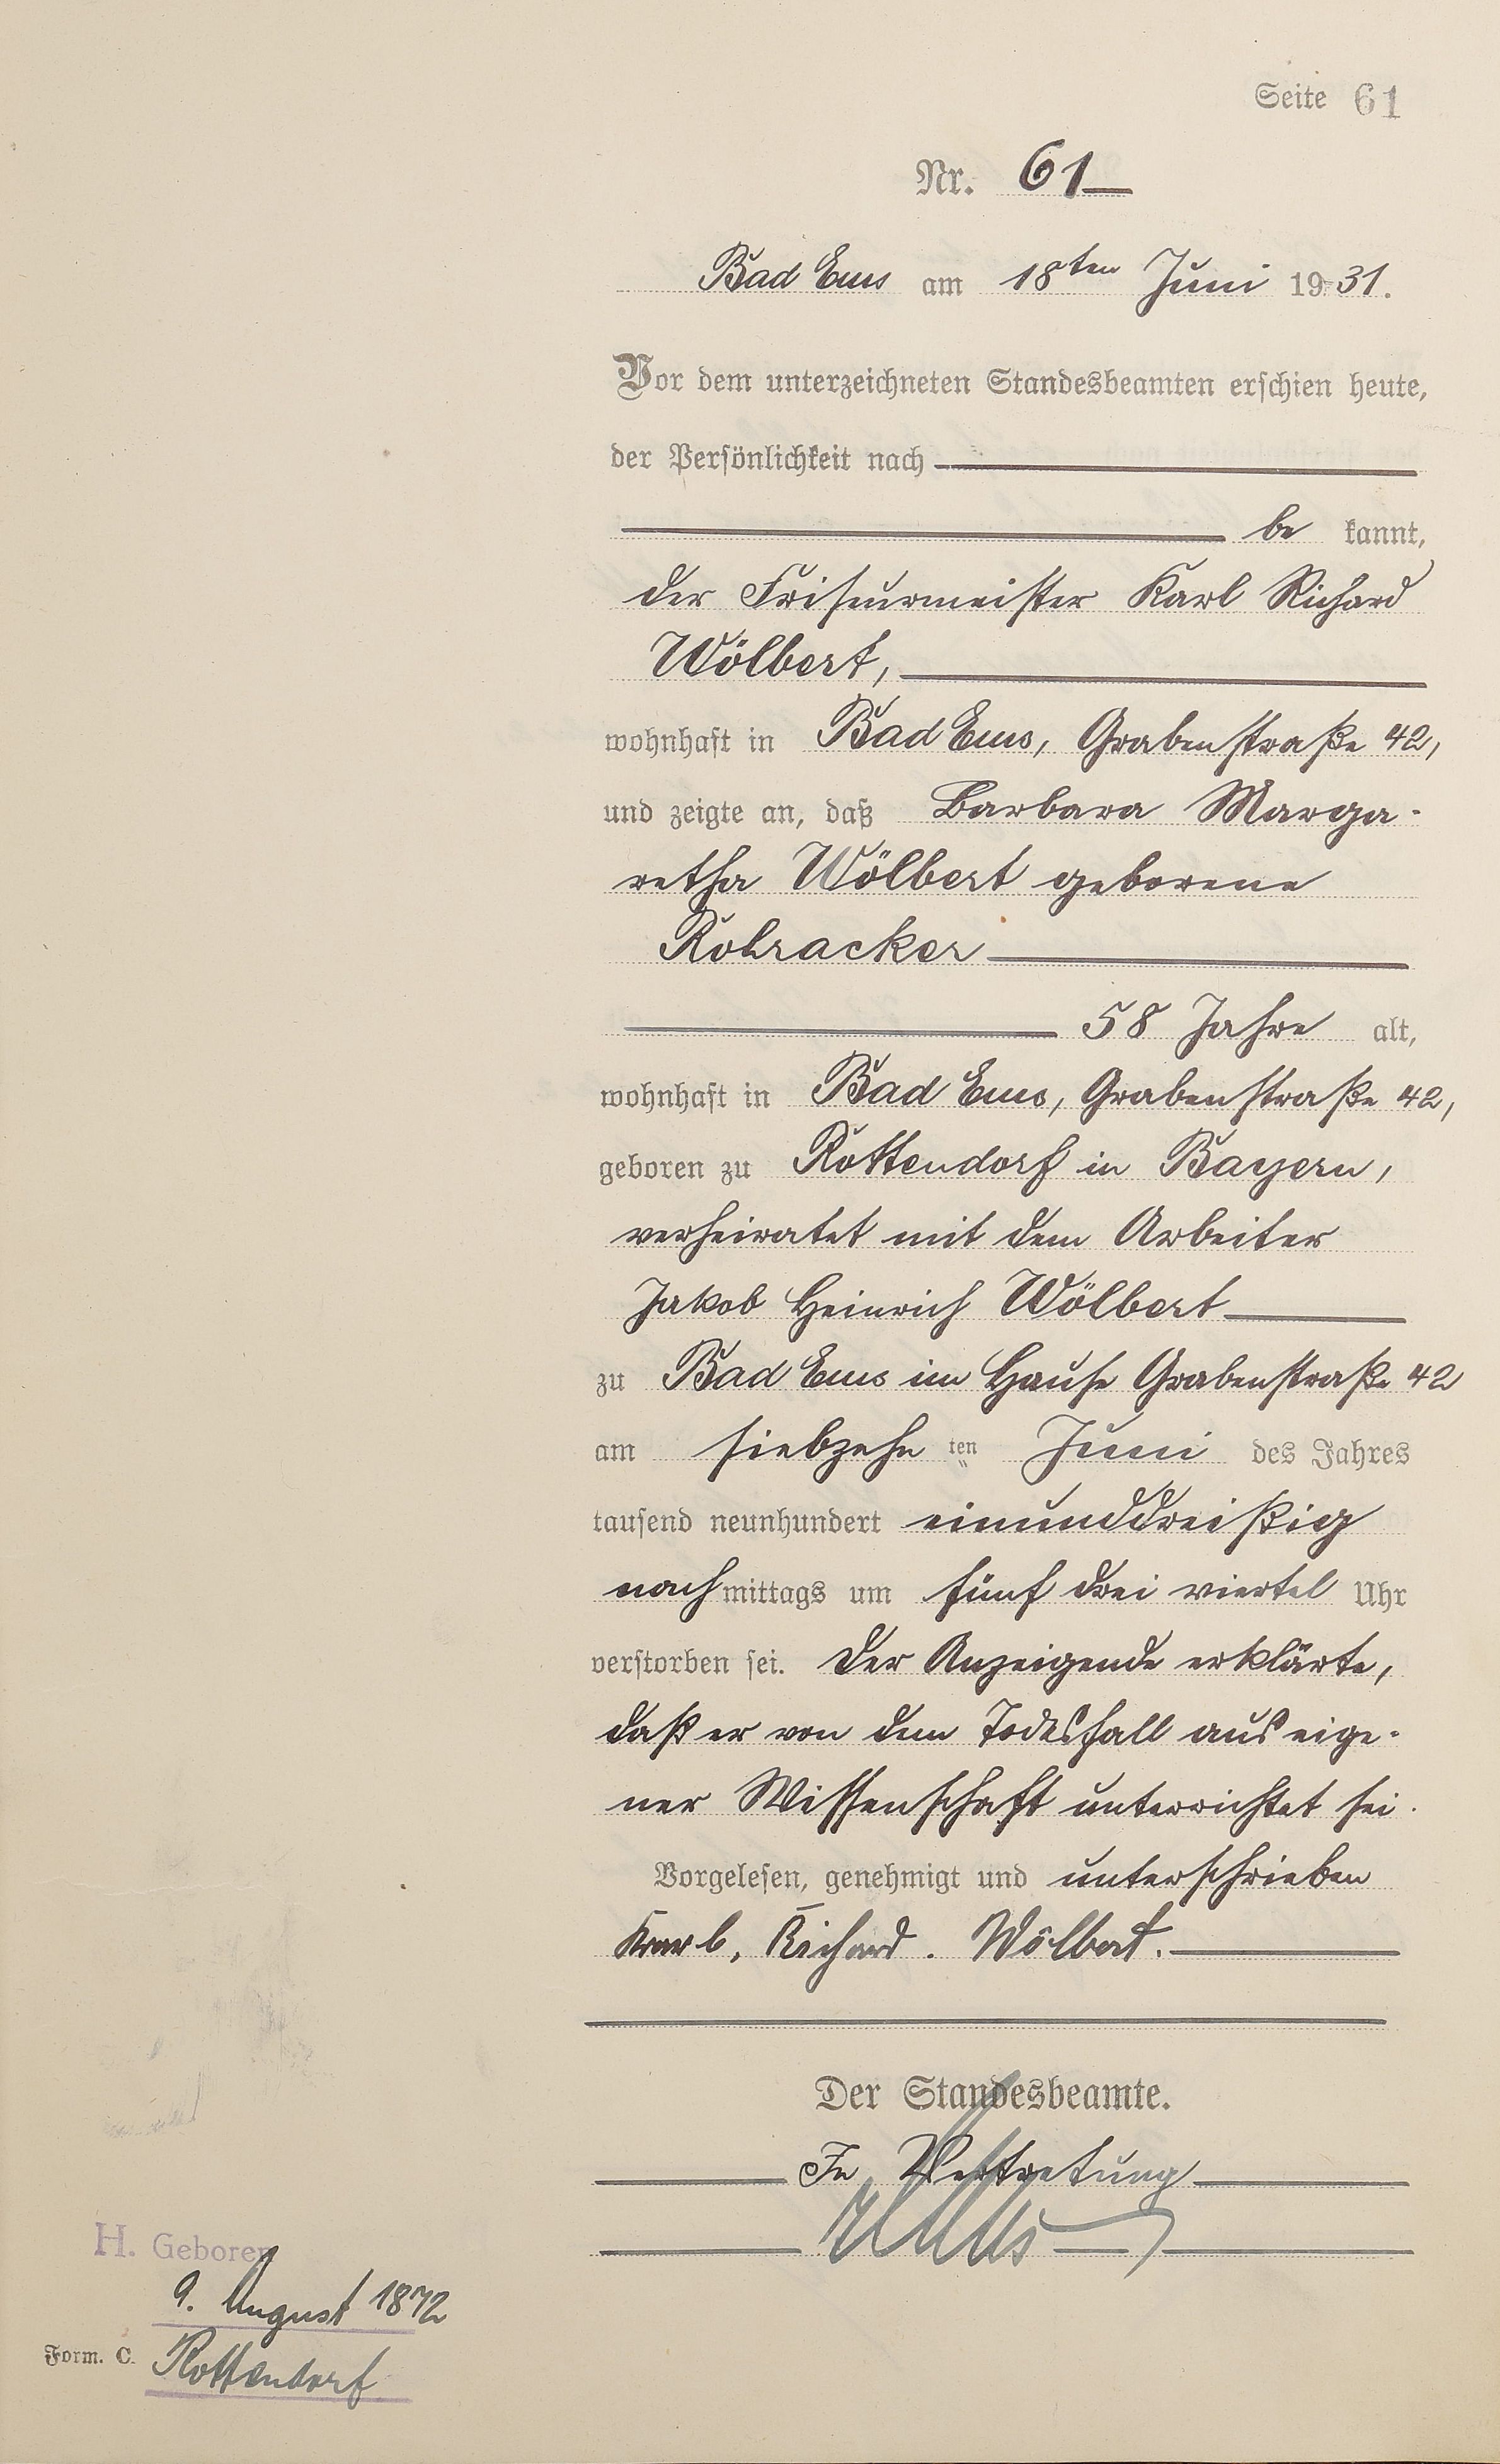 Seite 61
Nr. 61
Bad Ems am 18ten Juni 1931.
Vor dem unterzeichneten Standesbeamten erschien heute,
der Persönlichkeit nach
be kannt,
der Friseurmeister Karl Richard
Wölbert,
wohnhaft in Bad Ems, Grabenstraße 42,
und zeigte an, daß Barbara Marga-
retha Wölbert geborene
Rohracker
58 Jahre alt,
wohnhaft in Bad Ems, Grabenstraße 42,
geboren zu Rottendorf in Bayern,
verheiratet mit dem Arbeiter
Jakob Heinrich Wölbert
zu Bad Ems im Hause Grabenstraße 42
am siebzehn ten Juni des Jahres
tausend neunhundert einunddreißig
nachmittags um fünf drei viertel Uhr
verstorben sei. Der Anzeigende erklärte,
daß er von dem Todesfall aus eige-
ner Wissenschaft unterrichtet sei.
Vorgelesen, genehmigt und unterschrieben
Karl, Richard. Wölbert.
Der Standesbeamte.
In Vertretung
H. Geboren
9. August 1872
Form. C. Rottendorf